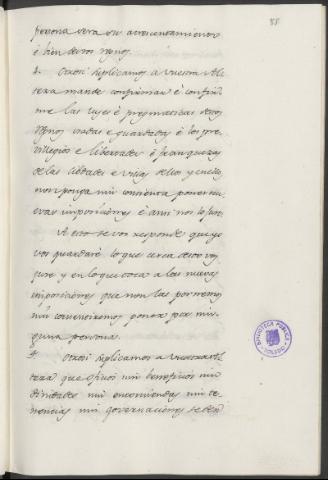 88
persona vera su acrecentamiento
é bien destos Rgnos.
4. Otrosi suplicamos a vuestra Al
teza mande confirmar é confir
me las leyes é pregmaticas destos
Rgnos usadas é guardadas é los pre
villegios é libertades é franquezas
de las cibdades e villas dellos y en ello
non ponga nin consienta poner nu
evas imposiciones é ansi nos lo jure
A esto se vos responde que yo
vos guardaré lo que cerca desto vos
jure y en lo que toca a las nuevas
imposiciones que non las pornemos
nin consentiremos poner por nin
guna persona.
Otrosi suplicamos a vuestra Al
teza que oficios nin beneficios nin
dinidades nin encomiendas nin te
nencias nin governaciones se den
BIBLIOTECA PUBLICA
TOLEDO